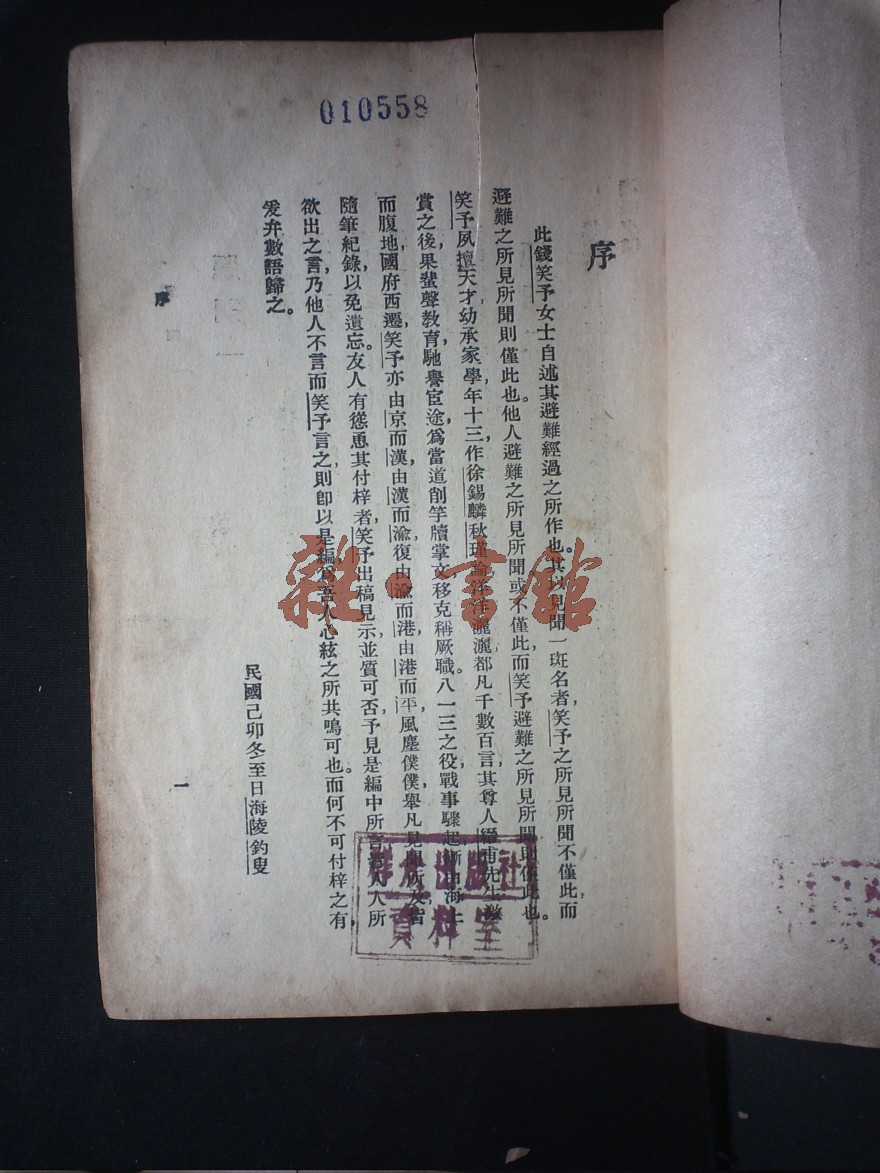 010558
序
此錢笑予女士自述其避難經過之所作也。其以見聞一斑名者，笑予之所見所聞不僅此，而
避難之所見所聞則僅此也。他人避難之所見所聞或不僅此，而笑予避難之所見所聞則僅此也。
笑予夙擅天才，幼承家學，年十三，作徐錫麟秋瑾論，洋洋灑灑，都凡千數百言，其尊人 甫先生激
賞之後，果蜚聲教育，馳譽宦途，爲當道削竿牘，掌文移，克稱厥職。八一三之役，戰事驟起，漸由海上
而腹地，國府西遷，笑予亦由京而漢，由漢而渝，復由渝而港，由港而平，風塵僕僕，舉凡見聞所及，皆
隨筆紀錄，以免遺忘。友人有慫恿其付梓者，笑予出稿見示，並質可否，予見是編中所言爲人人所
欲出之言，乃他人不言而笑予言之，則卽以是編爲吾人心絃之所共鳴可也。而何不可付梓之有，
爰弁數語歸之。
民國己卯冬至日海陵釣叟
序
一
雜·書館
群众出版社
資料室